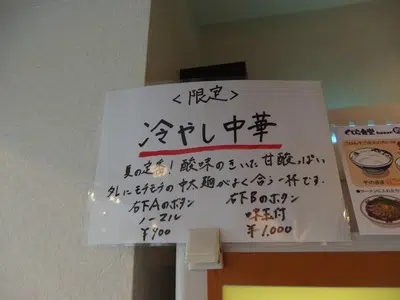 ＜限定＞
冷やし中華
夏の定番！酸味のきいた甘酸っぱい
タレにモチモチの中太麺がよく合う一杯です。
右下Aのボタン
ノーマル
￥900
右下Bのボタン
味玉付
￥1,000